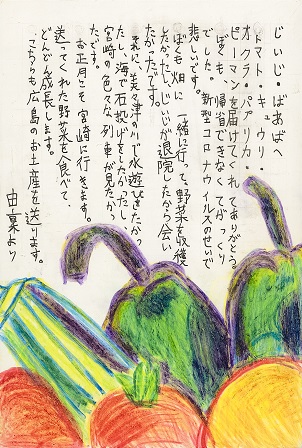 じいじ・ばあばへ
トマト・キュウリ・
オクラ・パプリカ・
ピーマンを届けてくれてありがとう。
ぼくも、帰省できなくてがっくり
でした。新型コロナウイルスのせいで
悲しいです。
ぼくも畑に一緒に行って、野菜を収穫
したかったし、じいじが退院したから会い
たかったです。
それに、美々津の川で水遊びをしたかっ
たし、海で石投げをしたかったし、
宮崎の色々な列車が見たかっ
たです。
お正月こそ宮崎に行きます。
送ってくれた野菜を食べて、
どんどん成長します。
こちらも広島のお土産を送ります。
より